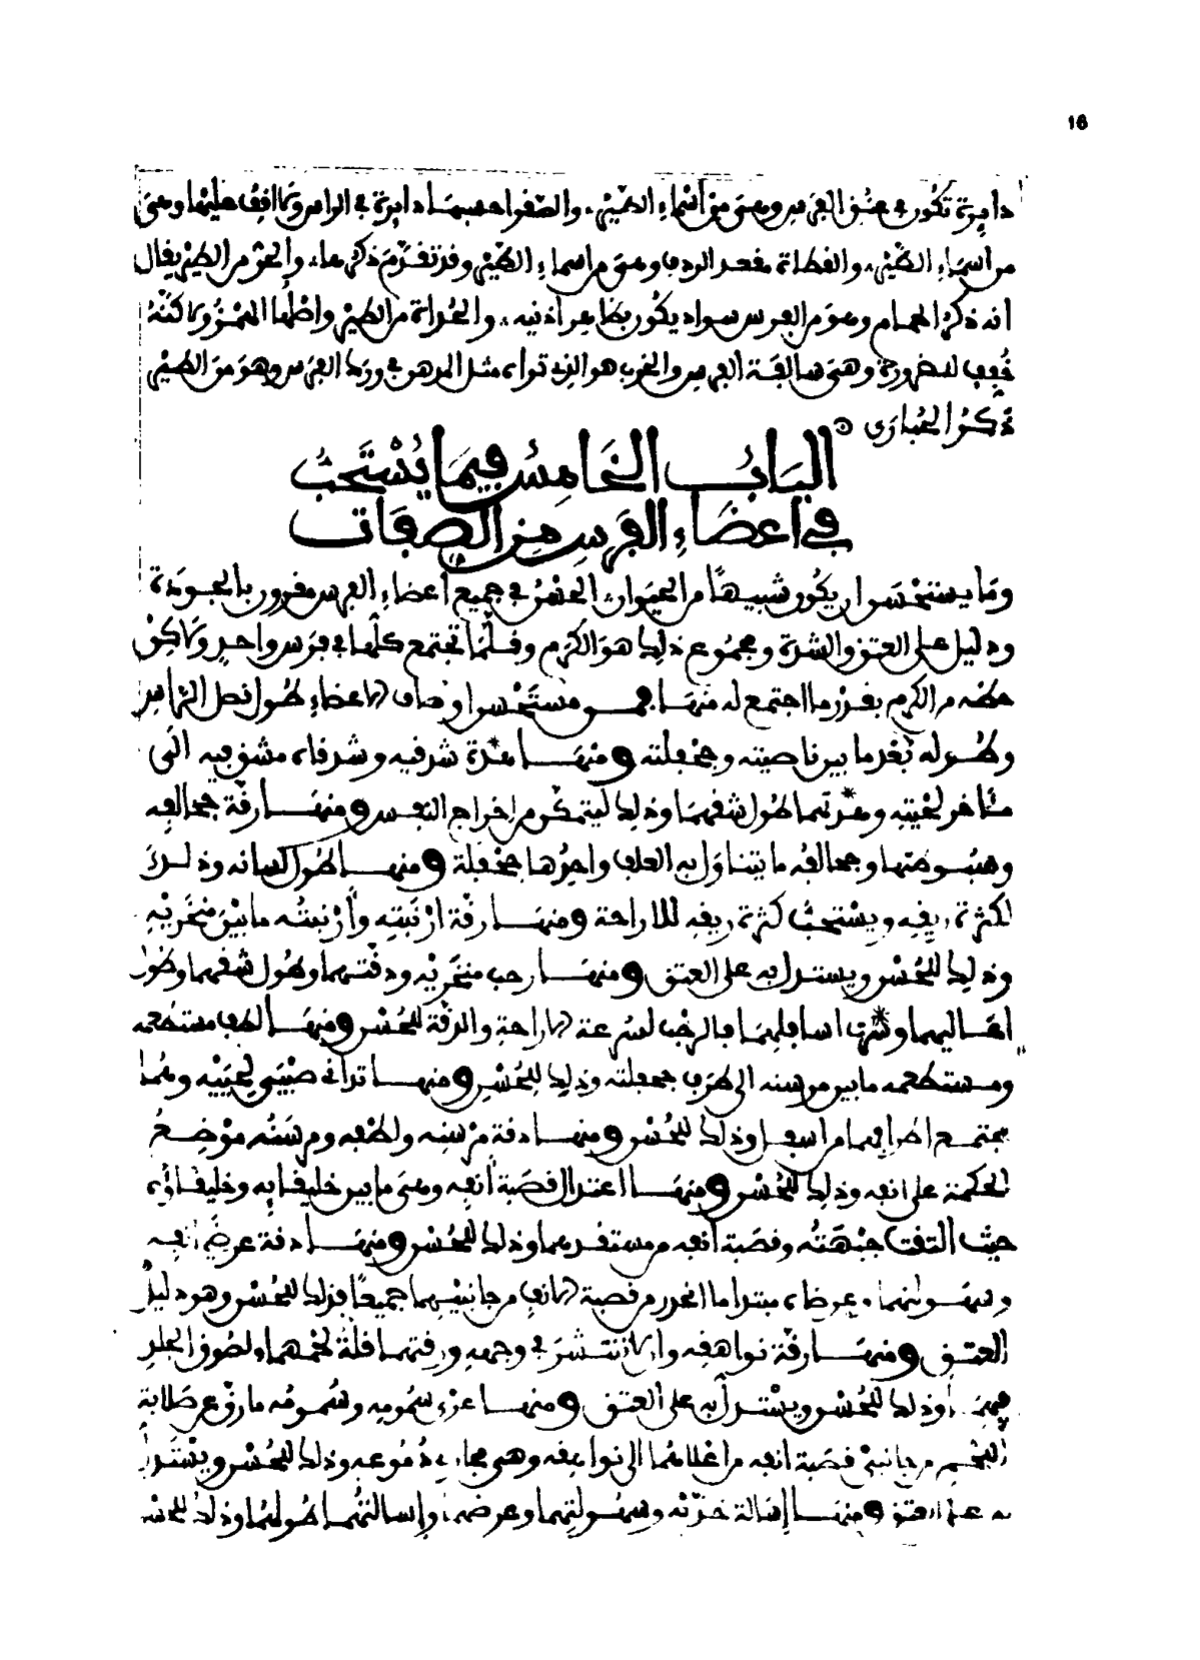 16
دايرة تكون في عنق الفرس وهى من أسماء الطير، والصقر احسبها دايرة في الراس ولا اقف عليها وهى
من أسماء الطير، والقطاة مقعد الردف وهى من اسماء الطير وقد تقدم ذكرها، والحر من الطير يقال
انه ذكر الحمام وهو من الفرس سواد يكون بظاهر أذنيه، والحداة من الطير واصلها الهمز ولاكنه
خفف للضرورة وهى سالفة الفرس والخرب هو الذي تراه مثل المدهن في ورك الفرس وهو من الطير
ذكر الحبارى
الباب الخامس فيما يستحب
في اعضاء الفرس من الصفات
وما يستحسن ان يكون شبيها من الحيوان الحسن في جميع أعضاء الفرس مقرون بالجودة
ودليل على العتق والشدة ومجموع ذلك هو الكرم وقلما تجتمع كلها في فرس واحد ولاكن
حظه من الكرم بقدر ما اجتمع له منها فمن مستحسن اوصاف الاعضاء طول نصل الراس
وطوله بعد ما بين ناصيته وجحفلته ومنها هرة شدقيه وشدقاه مشق فيه الى
منتاهر لحيته وهرتهما طول شقهما وذلك ليتمكن من إخراج النفس ومنها رقة جحافله
وهبوطتها وجحافله ما يتناول به العلف واحدها جحفلة ومنها طول لسانه وذلك
لكثرة ريقه ويستحب كثرة ريقه للاراحة ومنها رقة ارنبته وأرنبته ما بين منخريه
وذلك للحسن ويستدل به على العتق ومنها رحب منخريه ودقتهما وطول شقهما وطول
اعاليهما وهرت اسافلهما فالرحب لسرعة الاراحة والدقة للحسن ومنها لطف مستطعمه
ومستطعمه ما بين مرسنه الى طرف جحفلته وذلك للحسن ومنها تدانى صبيي لحييه وهما
مجتمع اطرافهما من اسفل وذلك للحسن ومنها دقة مرسنه ولطفه ومرسنه موضع
الحكمة على انفه وذلك للحسن ومنها اعتدال قصبة أنفه وهى ما بين خليقائه وخليقاؤه
حيث التقت جبهته وقصبة أنفه من مستقدمهما وذلك للحسن ومنها دقة عرض انفه
وسهولتهما وعرضاه مبتدا ما انحدر من قصبة الانف من جانبيهما جميعا فذلك للحسن وهو دليل
العتق ومنها رقة نواهقه وان لا تنتشر في وجهه ورقتهما قلة لحمهما ولصوق الجلد
فيهما وذلك للحسن ويستدل به على العتق ومنها عري سمومه وسمومه ما رق عن صلابة
العظم من جانبي قصبة انفه من اعلاهما الى نواهقه وهى مجاري دموعه وذلك للحسن ويستدل
به على العتق ومنها إسالة خدّيه وسهولتهما وعرضهما وإسالتهما طولهما وذلك للحسن